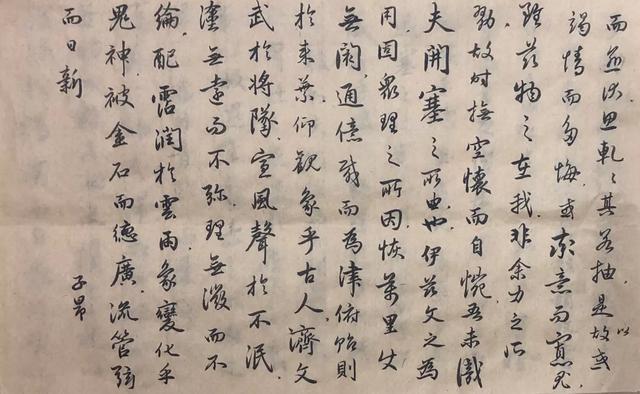 而逾伏思軋々其若抽是故以或
竭情而多悔或率意而寡尤
雖茲物之在我非余力之所
勠故時撫空懷而自惋吾未識
夫開塞之所由也伊茲文之為
用固衆理之所因恢萬里使
無閡通億載而為津俯貽則
於来葉仰觀象乎古人濟文
武於將墜宣風聲於不泯
塗無遠而不弥理無微而不
綸配霑潤於雲雨象變化乎
鬼神被金石而德廣流管弦
而日新
子昂